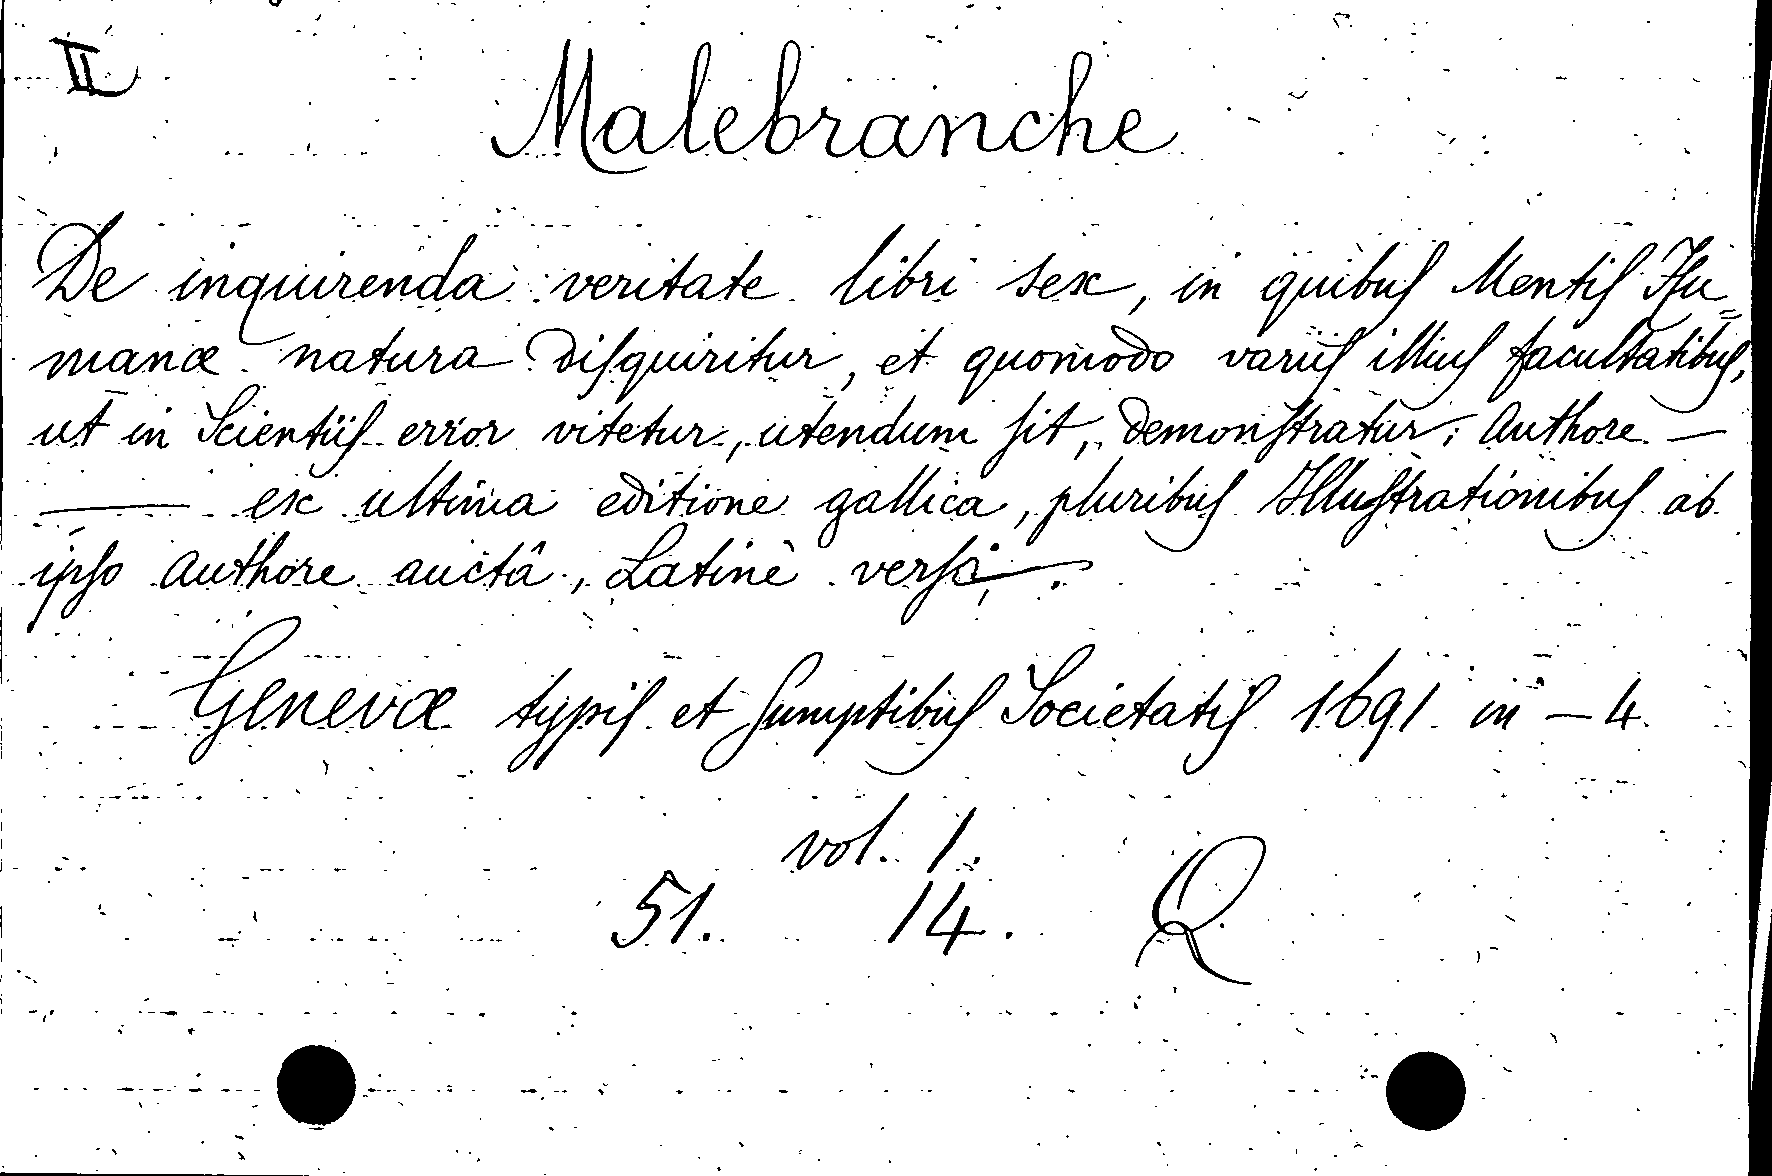 II
Malebranche
De inquirenda veritate libri sex, in quibus Mentis Hu=
manæ natura disquiritur, et quomodo variis illius facultatibus,
ut in Scientiis error vitetur, utendum sit, demonstratur; Authore —
— ex ultima editione gallica, pluribus Illustrationibus ab
ipso Authore auctâ, Latinè versi, —.
Genevæ typis et sumptibus Societatis 1691 in – 4
vol. 1.
51. 14. Q